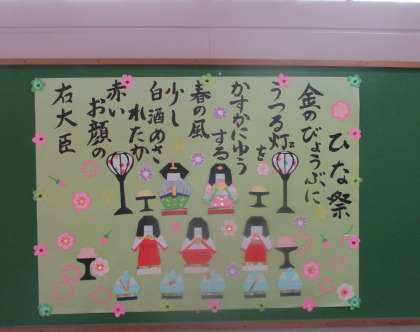 ひな祭
金のびょうぶに
うつる灯
を
かすかにゆう
する
春の風
少し
白酒めさ
れたか
赤い
お顔の
右大臣